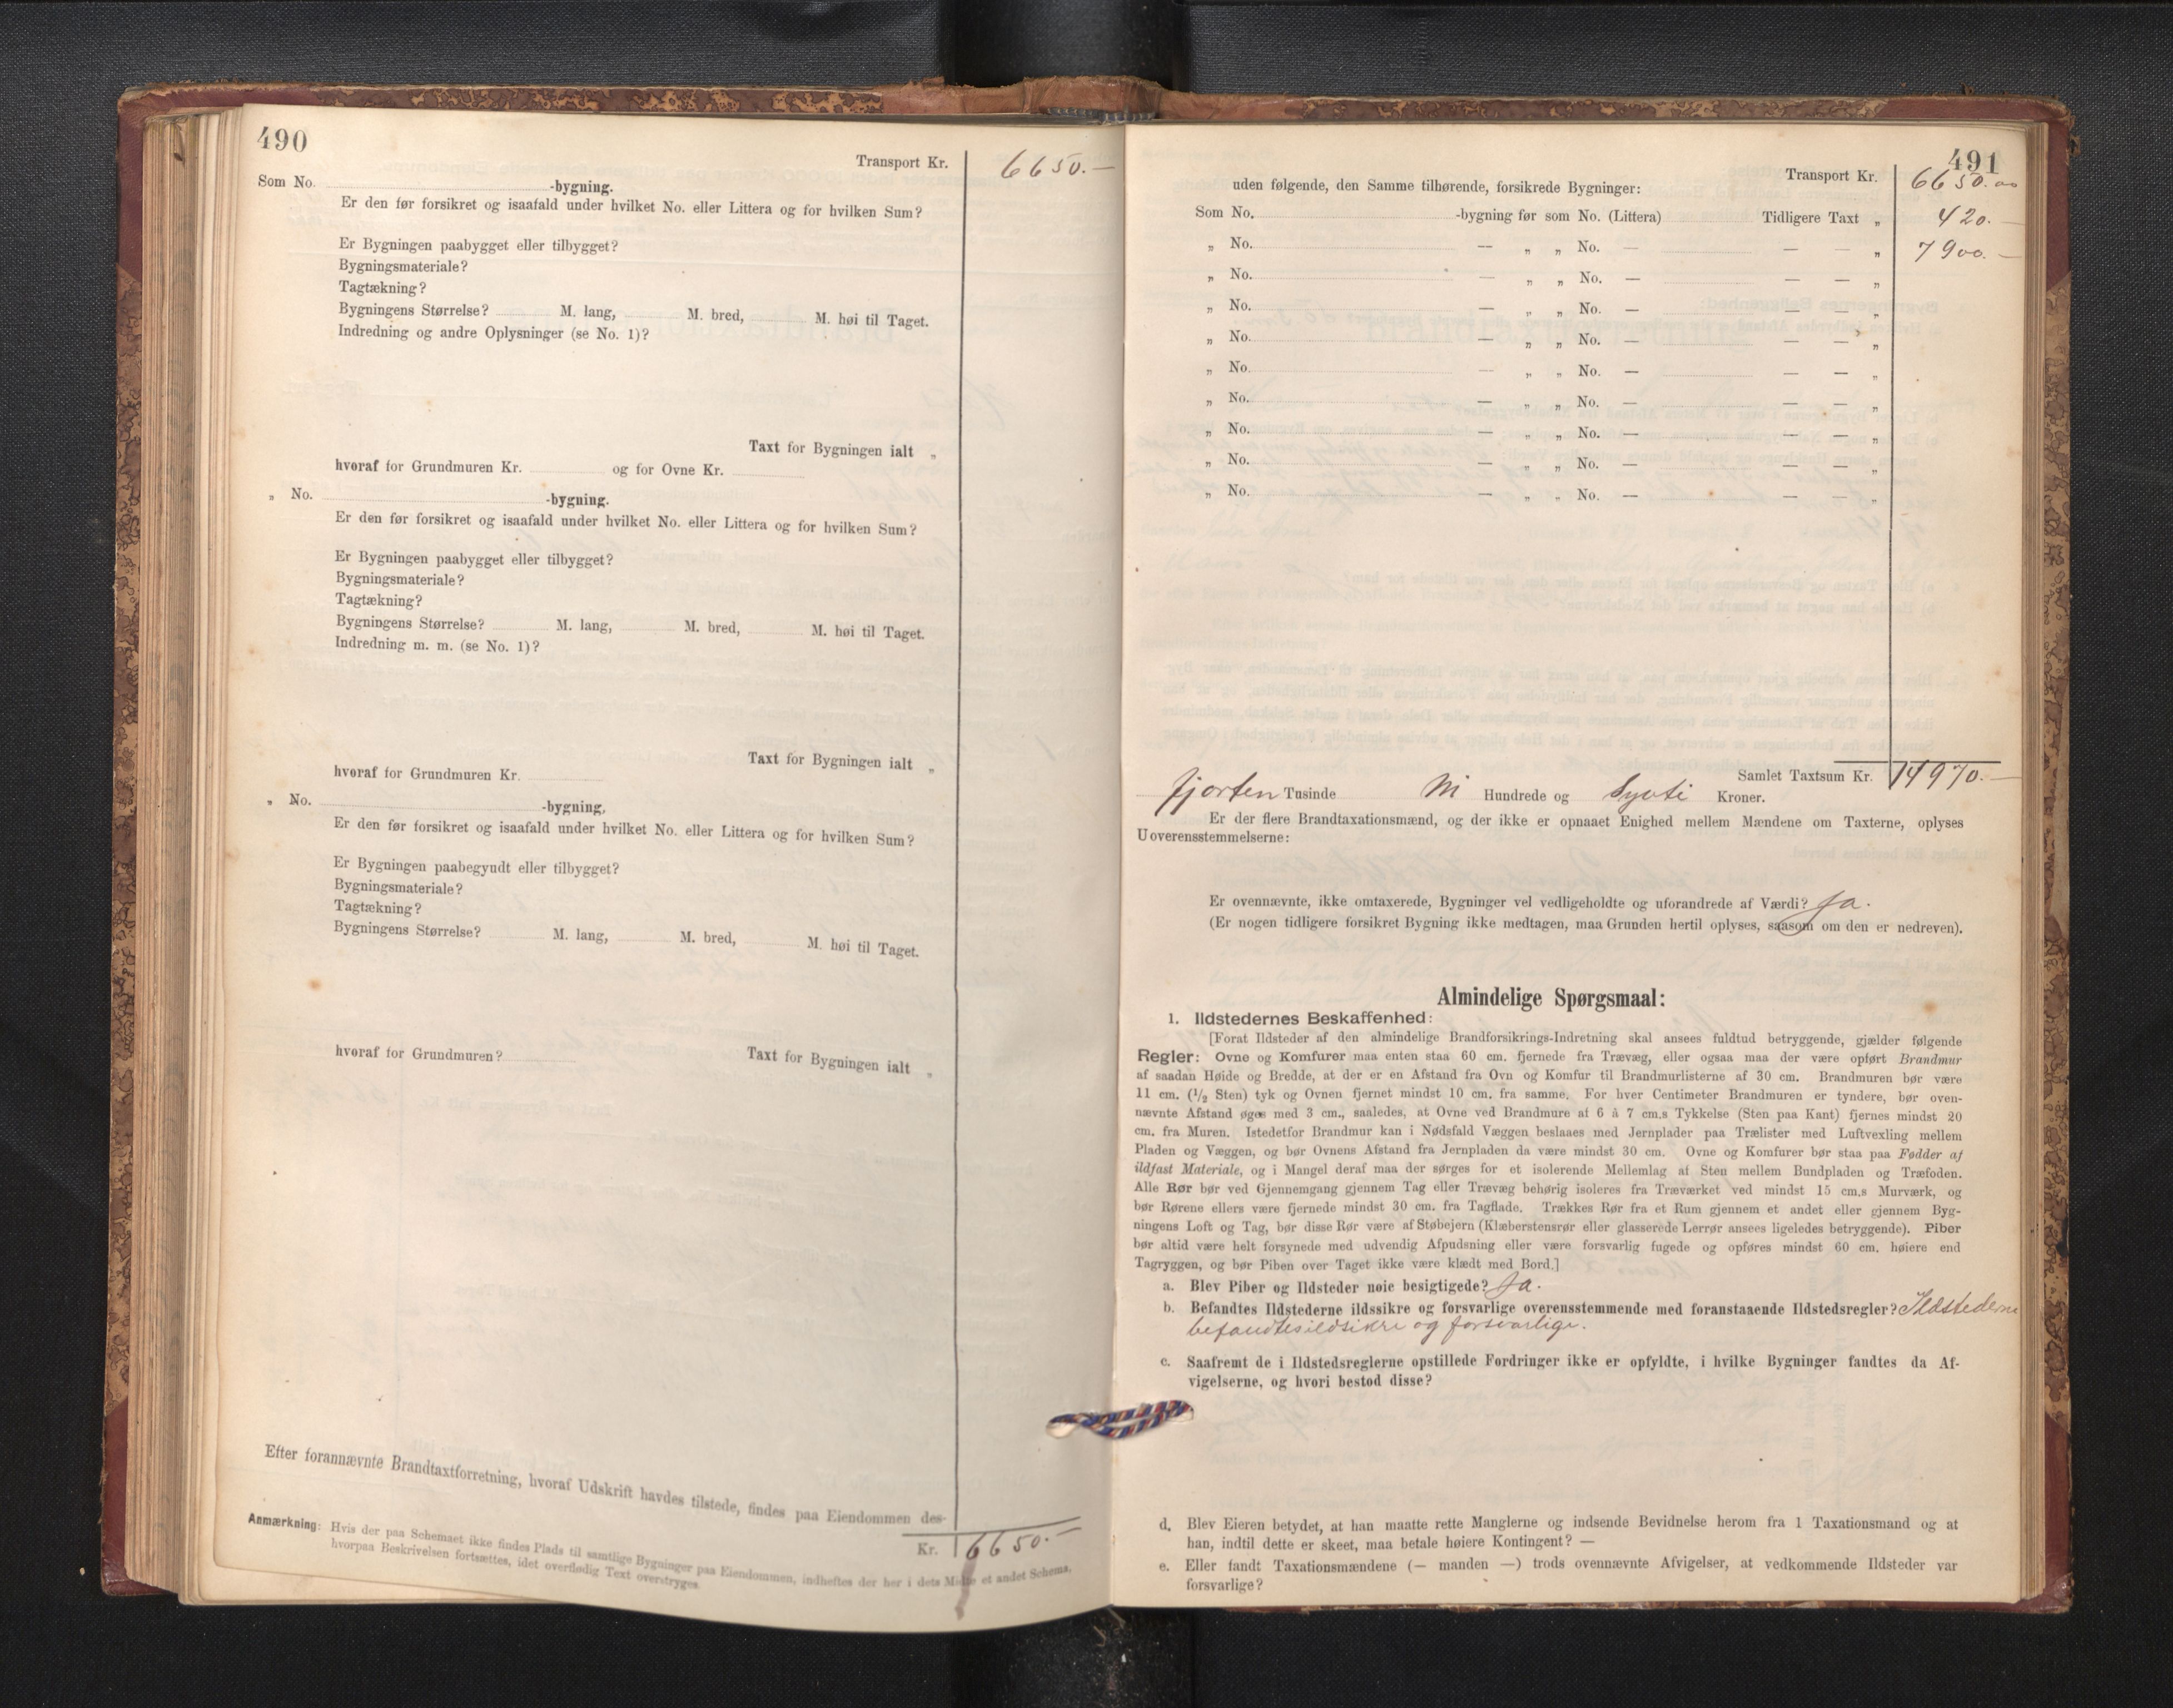 490
Transport Kr. 6650.—
Som No. -bygning.
Er den før forsikret og isaafald under hvilket No. eller Littera og for hvilken Sum?
Er Bygningen paabygget eller tilbygget?
Bygningsmateriale?
Tagtækning?
Bygningens Størrelse? M. lang, M. bred, M. høi til Taget.
Indredning og andre Oplysninger (se No. 1)?
Taxt for Bygningen ialt „
hvoraf for Grundmuren Kr. og for Ovne Kr.
„ No. -bygning.
Er den før forsikret og isaafald under hvilket No. eller Littera og for hvilken Sum?
Er Bygningen paabygget eller tilbygget?
Bygningsmateriale?
Tagtækning?
Bygningens Størrelse? M. lang, M. bred, M. høi til Taget.
Indredning m. m. (se No. 1)?
Taxt for Bygningen ialt „
hvoraf for Grundmuren Kr.
„ No. -bygning,
Er den før forsikret og isaafald under hvilket No. eller Littera og for hvilken Sum?
Er Bygningen paabegyndt eller tilbygget?
Bygningsmateriale?
Tagtækning?
Bygningens Størrelse? M. lang, M. bred, M. høi til Taget.
hvoraf for Grundmuren? Taxt for Bygningen ialt „
Efter forannævnte Brandtaxtforretning, hvoraf Udskrift havdes tilstede, findes paa Eiendommen des-
Kr. 6650.—
Anmærkning: Hvis der paa Schemaet ikke findes Plads til samtlige Bygninger paa Eiendommen, indheftes der her i dets Midte et andet Schema,
hvorpaa Beskrivelsen fortsættes, idet overflødig Text overstryges.
491
Transport Kr. 6650.00
uden følgende, den Samme tilhørende, forsikrede Bygninger:
Som No. -bygning før som No. (Littera) Tidligere Taxt „ 420.—
„ No. — „ „ No. — — — „ 7900.—
„ No. — „ „ No. — — — „
„ No. — „ „ No. — — — „
„ No. — „ „ No. — — — „
„ No. — „ „ No. — — — „
„ No. — „ „ No. — — — „
„ No. — „ „ No. — — — „
„ No. — „ „ No. — — — „
„ No. — „ „ No. — — — „
Samlet Taxtsum Kr. 14970.—
fjorten Tusinde Ni Hundrede og Sytti Kroner.
Er der flere Brandtaxationsmænd, og der ikke er opnaaet Enighed mellem Mændene om Taxterne, oplyses
Uoverensstemmelserne:
Er ovennævnte, ikke omtaxerede, Bygninger vel vedligeholdte og uforandrede af Værdi? Ja.
(Er nogen tidligere forsikret Bygning ikke medtagen, maa Grunden hertil oplyses, saasom om den er nedreven).
Almindelige Spørgsmaal:
1. Ildstedernes Beskaffenhed:
[Forat Ildsteder af den almindelige Brandforsikrings-Indretning skal ansees fuldtud betryggende, gjælder følgende
Regler: Ovne og Komfurer maa enten staa 60 cm. fjernede fra Trævæg, eller ogsaa maa der være opført Brandmur
af saadan Høide og Bredde, at der er en Afstand fra Ovn og Komfur til Brandmurlisterne af 30 cm. Brandmuren bør være
11 cm. (1/2 Sten) tyk og Ovnen fjernet mindst 10 cm. fra samme. For hver Centimeter Brandmuren er tyndere, bør oven-
nævnte Afstand øges med 3 cm., saaledes, at Ovne ved Brandmure af 6 à 7 cm.s Tykkelse (Sten paa Kant) fjernes mindst 20
cm. fra Muren. Istedetfor Brandmur kan i Nødsfald Væggen beslaaes med Jernplader paa Trælister med Luftvexling mellem
Pladen og Væggen, og bør Ovnens Afstand fra Jernpladen da være mindst 30 cm. Ovne og Komfurer bør staa paa Fødder af
ildfast Materiale, og i Mangel deraf maa der sørges for et isolerende Mellemlag af Sten mellem Bundpladen og Træfoden.
Alle Rør bør ved Gjennemgang gjennem Tag eller Trævæg behørig isoleres fra Træværket ved mindst 15 cm.s Murværk, og
bør Rørene ellers være fjernede mindst 30 cm. fra Tagflade. Trækkes Rør fra et Rum gjennem et andet eller gjennem Byg-
ningens Loft og Tag, bør disse Rør være af Støbejern (Klæberstensrør eller glasserede Lerrør ansees ligeledes betryggende). Piber
bør altid være helt forsynede med udvendig Afpudsning eller være forsvarlig fugede og opføres mindst 60 cm. høiere end
Tagryggen, og bør Piben over Taget ikke være klædt med Bord.]
a. Blev Piber og Ildsteder nøie besigtigede? Ja.
b. Befandtes Ildstederne ildssikre og forsvarlige overensstemmende med foranstaaende Ildstedsregler? Ildstederne
befandtes ildsikre og forsvarlige.
c. Saafremt de i Ildstedsreglerne opstillede Fordringer ikke er opfyldte, i hvilke Bygninger fandtes da Af-
vigelserne, og hvori bestod disse?
d. Blev Eieren betydet, at han maatte rette Manglerne og indsende Bevidnelse herom fra 1 Taxationsmand og at
han, indtil dette er skeet, maa betale høiere Kontingent? —
e. Eller fandt Taxationsmændene (— manden —) trods ovennævnte Afvigelser, at vedkommende Ildsteder var
forsvarlige?